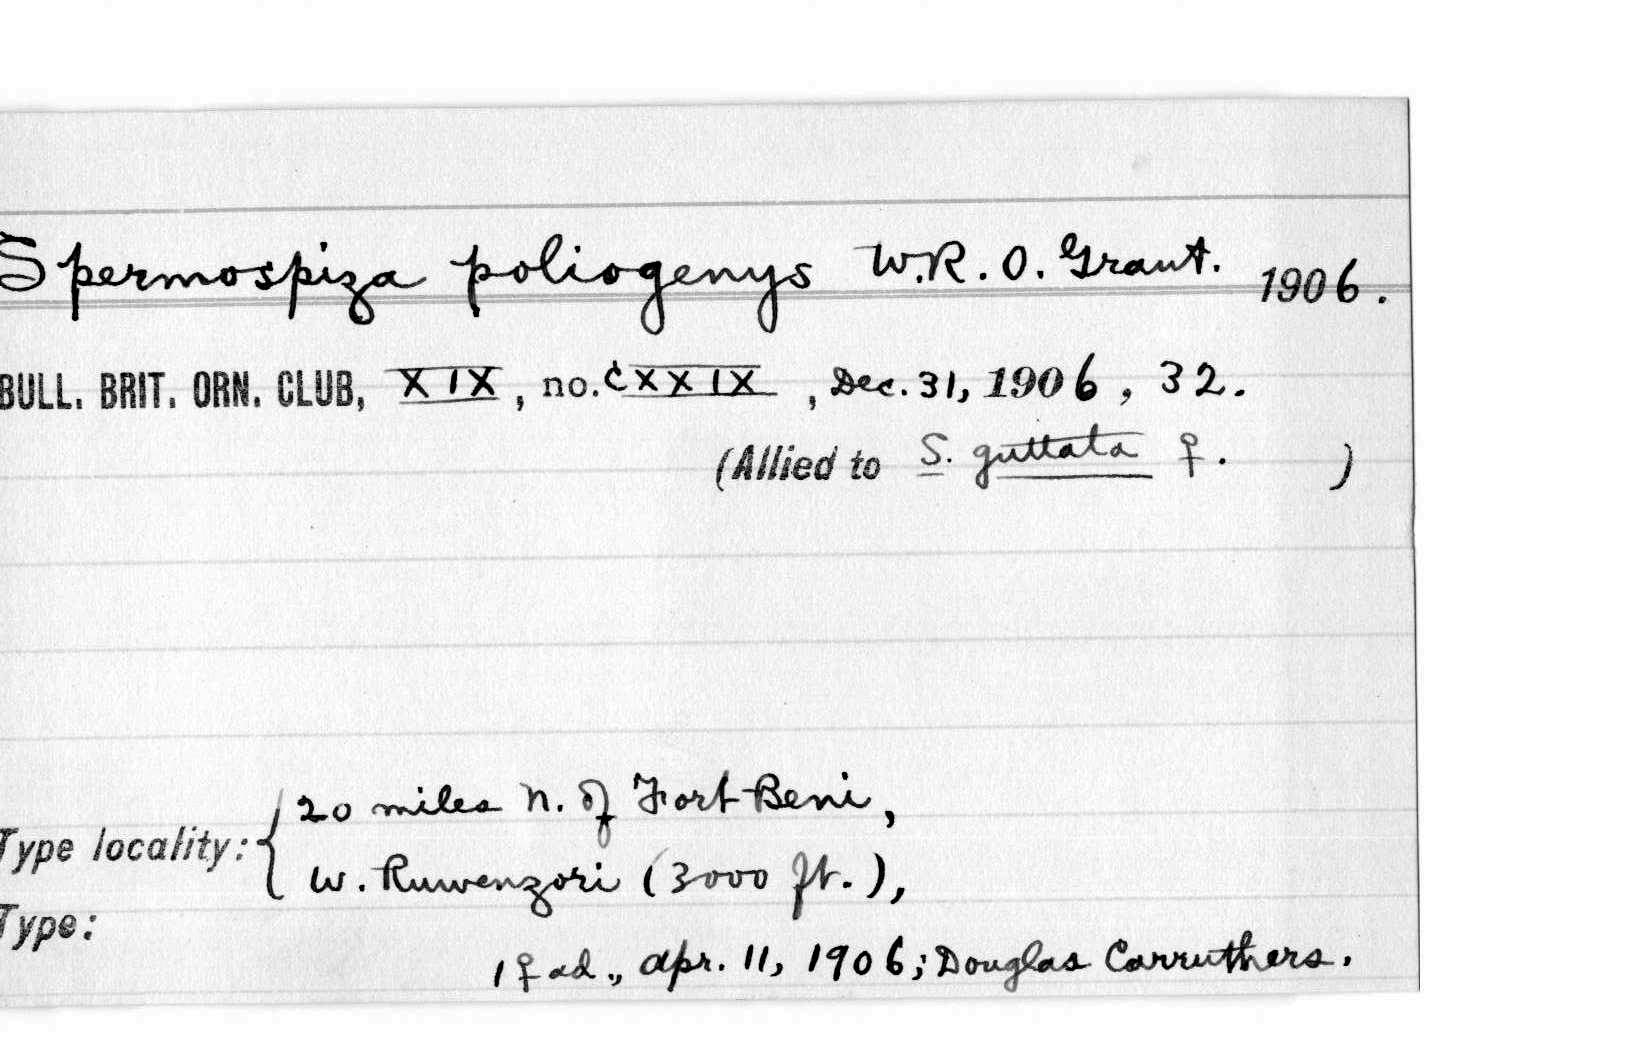 Spermospiza poliogenys W.R.O. Grant. 1906.
BULL. BRIT. ORN. CLUB, XIX, no. CXXIX, Dec. 31, 1906, 32.
(Allied to S. guttata ♀. )
20 miles N. of Fort Beni,
Type locality: {
W. Ruwenzori (3000 ft.),
Type:
1 ♀ ad., Apr. 11, 1906; Douglas Carruthers.